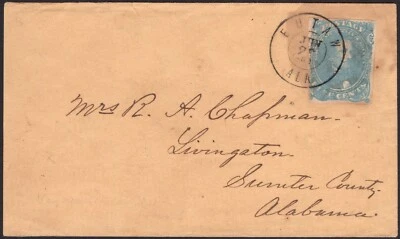 EUTAW
JUN
ALA
CENTS
Mrs R. A. Chapman.
Livingston
Sumter County
Alabama.